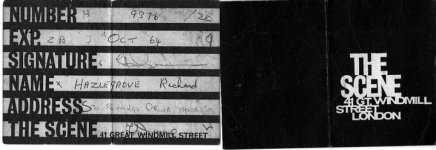 NUMBER H 9376 /26
EXP. 28 OCT 64
SIGNATURE:
NAME: HAZLEGROVE Richard
ADDRESS:
THE SCENE 41 GREAT WINDMILL STREET
THE
SCENE
41 GT. WINDMILL
STREET
LONDON